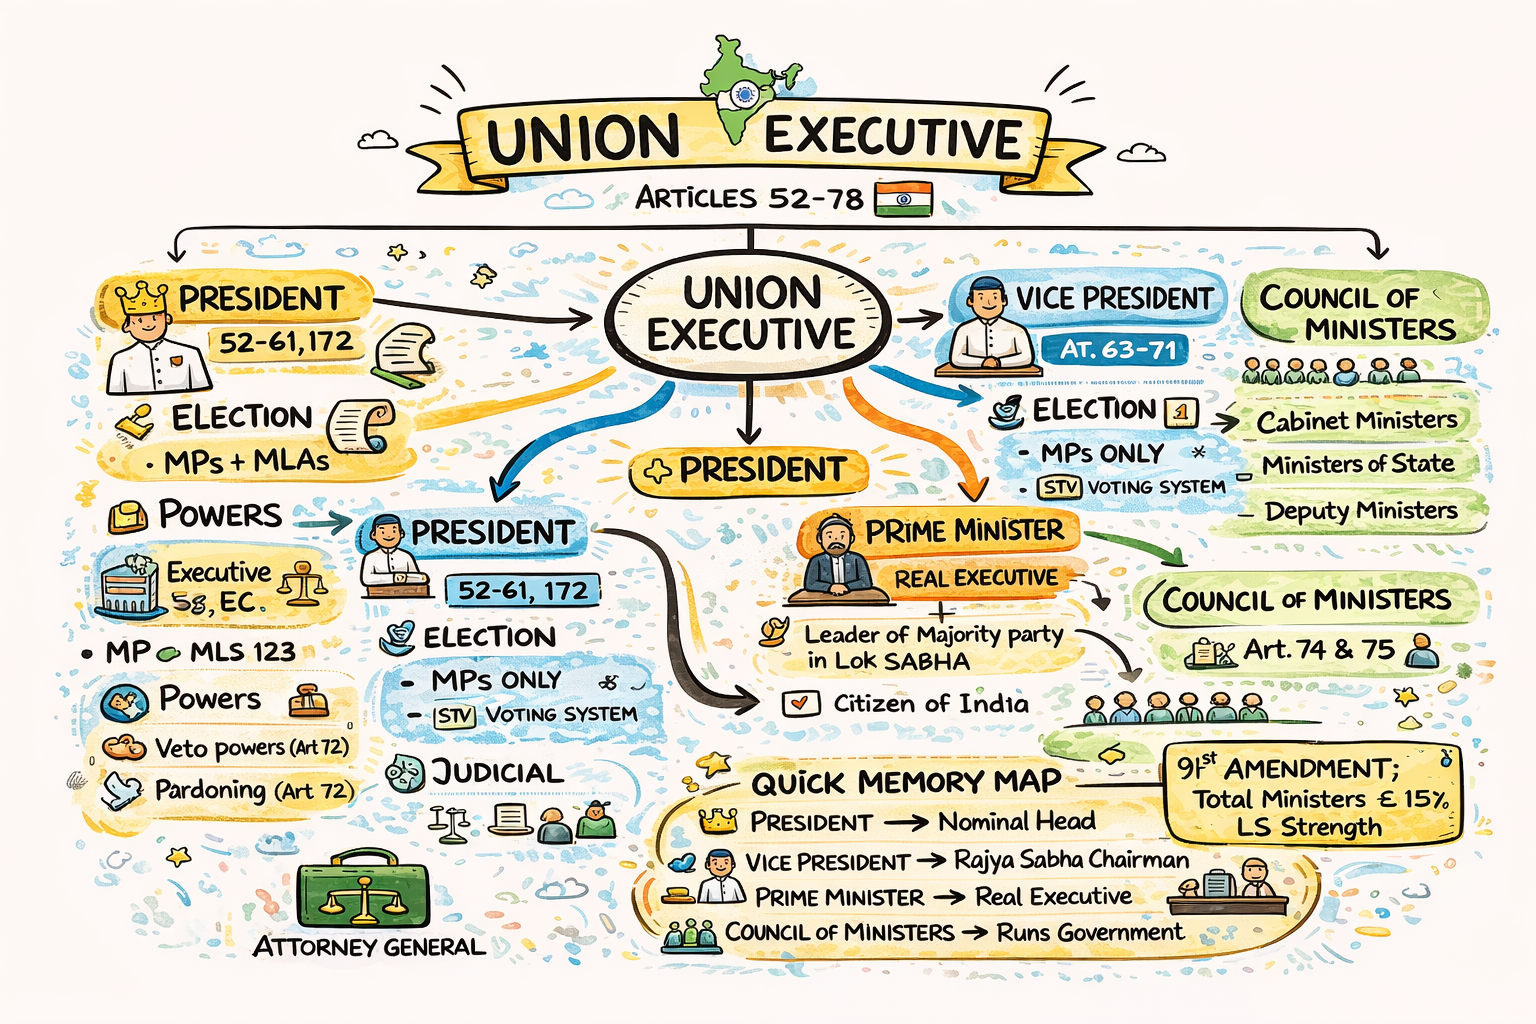 UNION EXECUTIVE
ARTICLES 52-78
PRESIDENT
52-61, 172
ELECTION
• MPs + MLAs
POWERS
Executive
EC.
• MP MLS 123
Powers
Veto powers (Art 72)
Pardoning (Art 72)
ATTORNEY GENERAL
UNION
EXECUTIVE
PRESIDENT
PRESIDENT
52-61, 172
ELECTION
- MPs ONLY
- STV VOTING SYSTEM
JUDICIAL
PRIME MINISTER
REAL EXECUTIVE
Leader of Majority party
in Lok SABHA
Citizen of India
VICE PRESIDENT
AT. 63-71
ELECTION 1
- MPs ONLY *
• STV VOTING SYSTEM
COUNCIL OF
MINISTERS
Cabinet Ministers
Ministers of State
Deputy Ministers
COUNCIL OF MINISTERS
Art. 74 & 75
91st AMENDMENT;
Total Ministers € 15%
LS Strength
QUICK MEMORY MAP
PRESIDENT → Nominal Head
VICE PRESIDENT → Rajya Sabha Chairman
PRIME MINISTER → Real Executive
COUNCIL OF MINISTERS → Runs Government